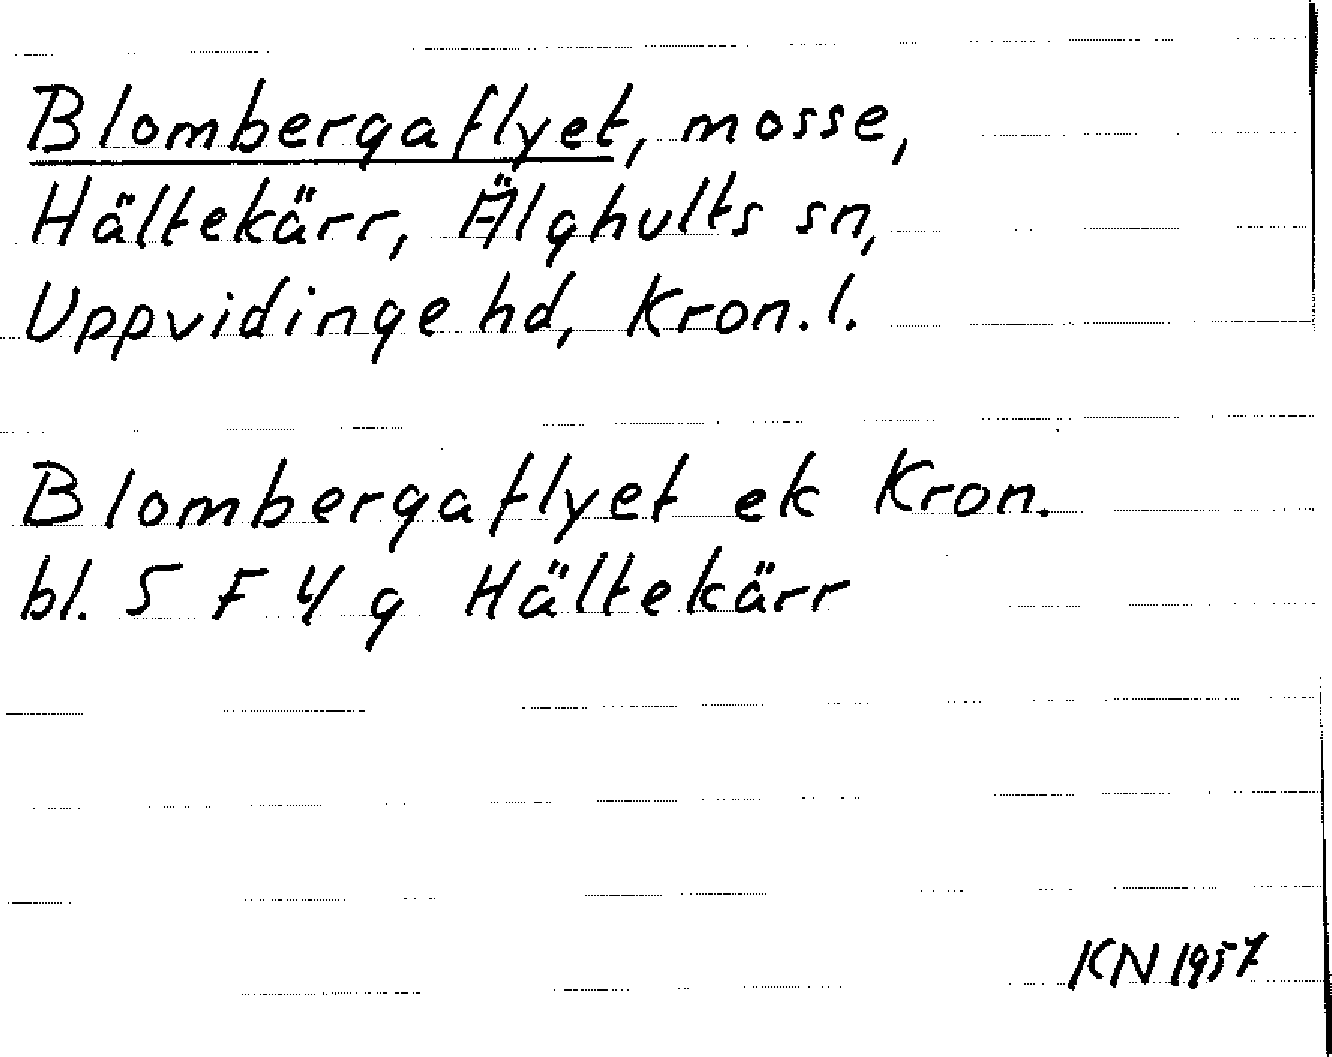 Blombergaflyet, mosse,
Hältekärr, Älghults sn,
Uppvidinge hd, Kron. l.
Blombergaflyet ek Kron.
bl. 5 F 4 g Hältekärr
KN 1957